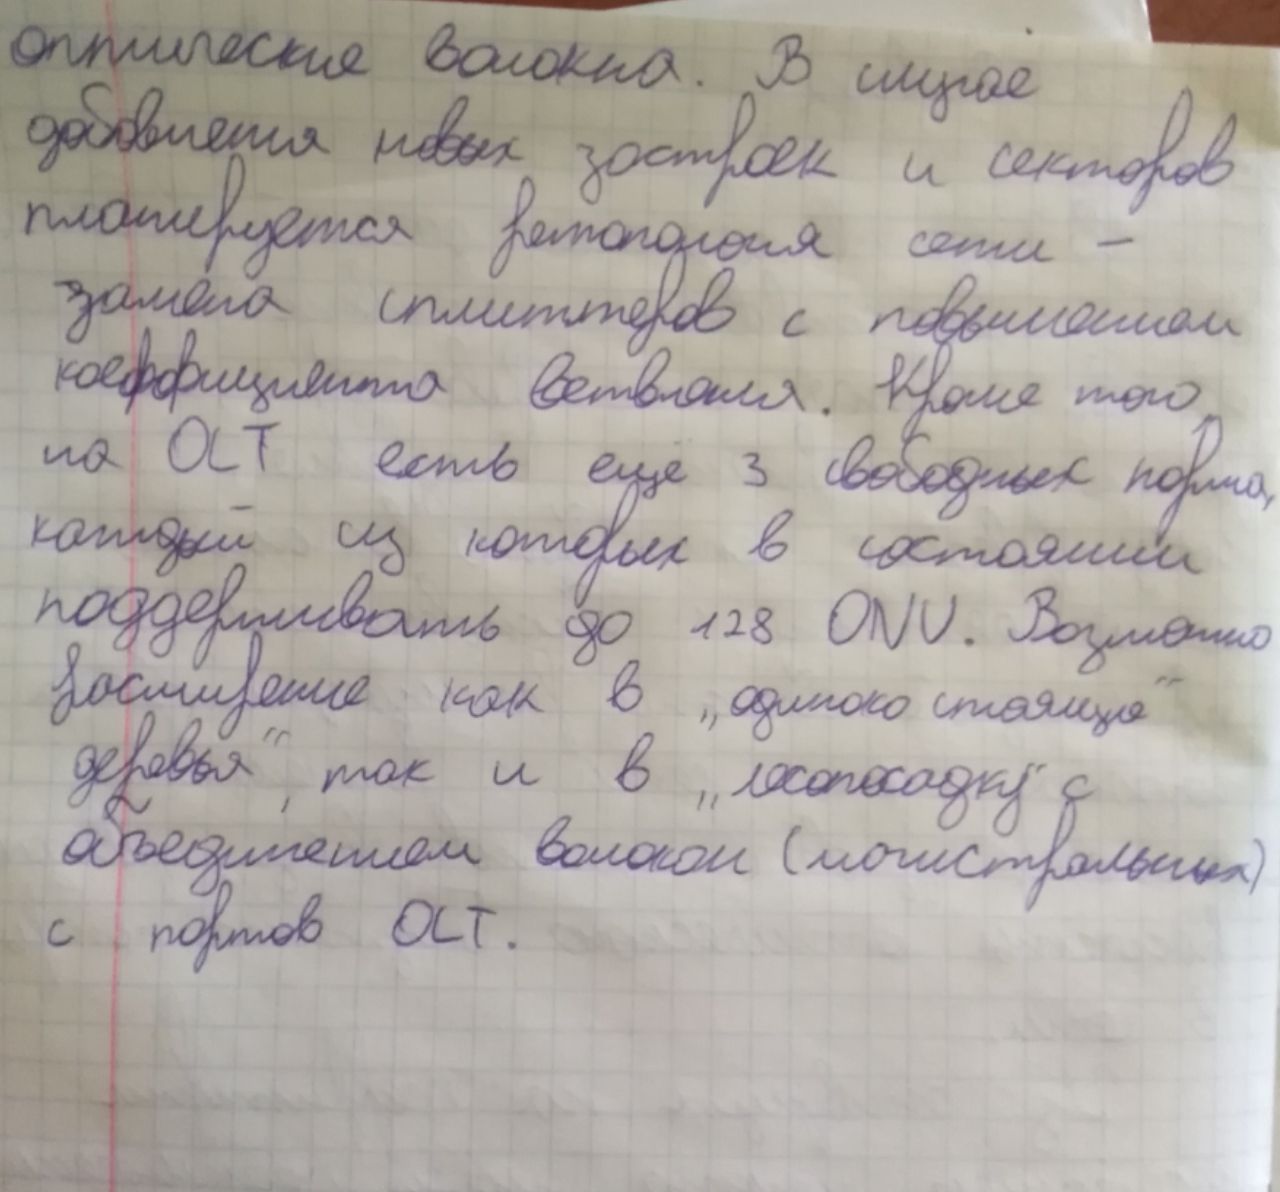 оптические волокна. В случае
добавления новых застроек и секторов
планируется ретопология сети –
замена сплиттеров с повышением
коеффициента ветвления. Кроме того,
на OLT есть ещё 3 свободных порта,
каждый из которых в состоянии
поддерживать до 128 ONU. Возможно
расширение как в „одиноко стоящие"
деревья", так и в „лесопосадку" с
объединением волокон (магистральных)
с портов OLT.